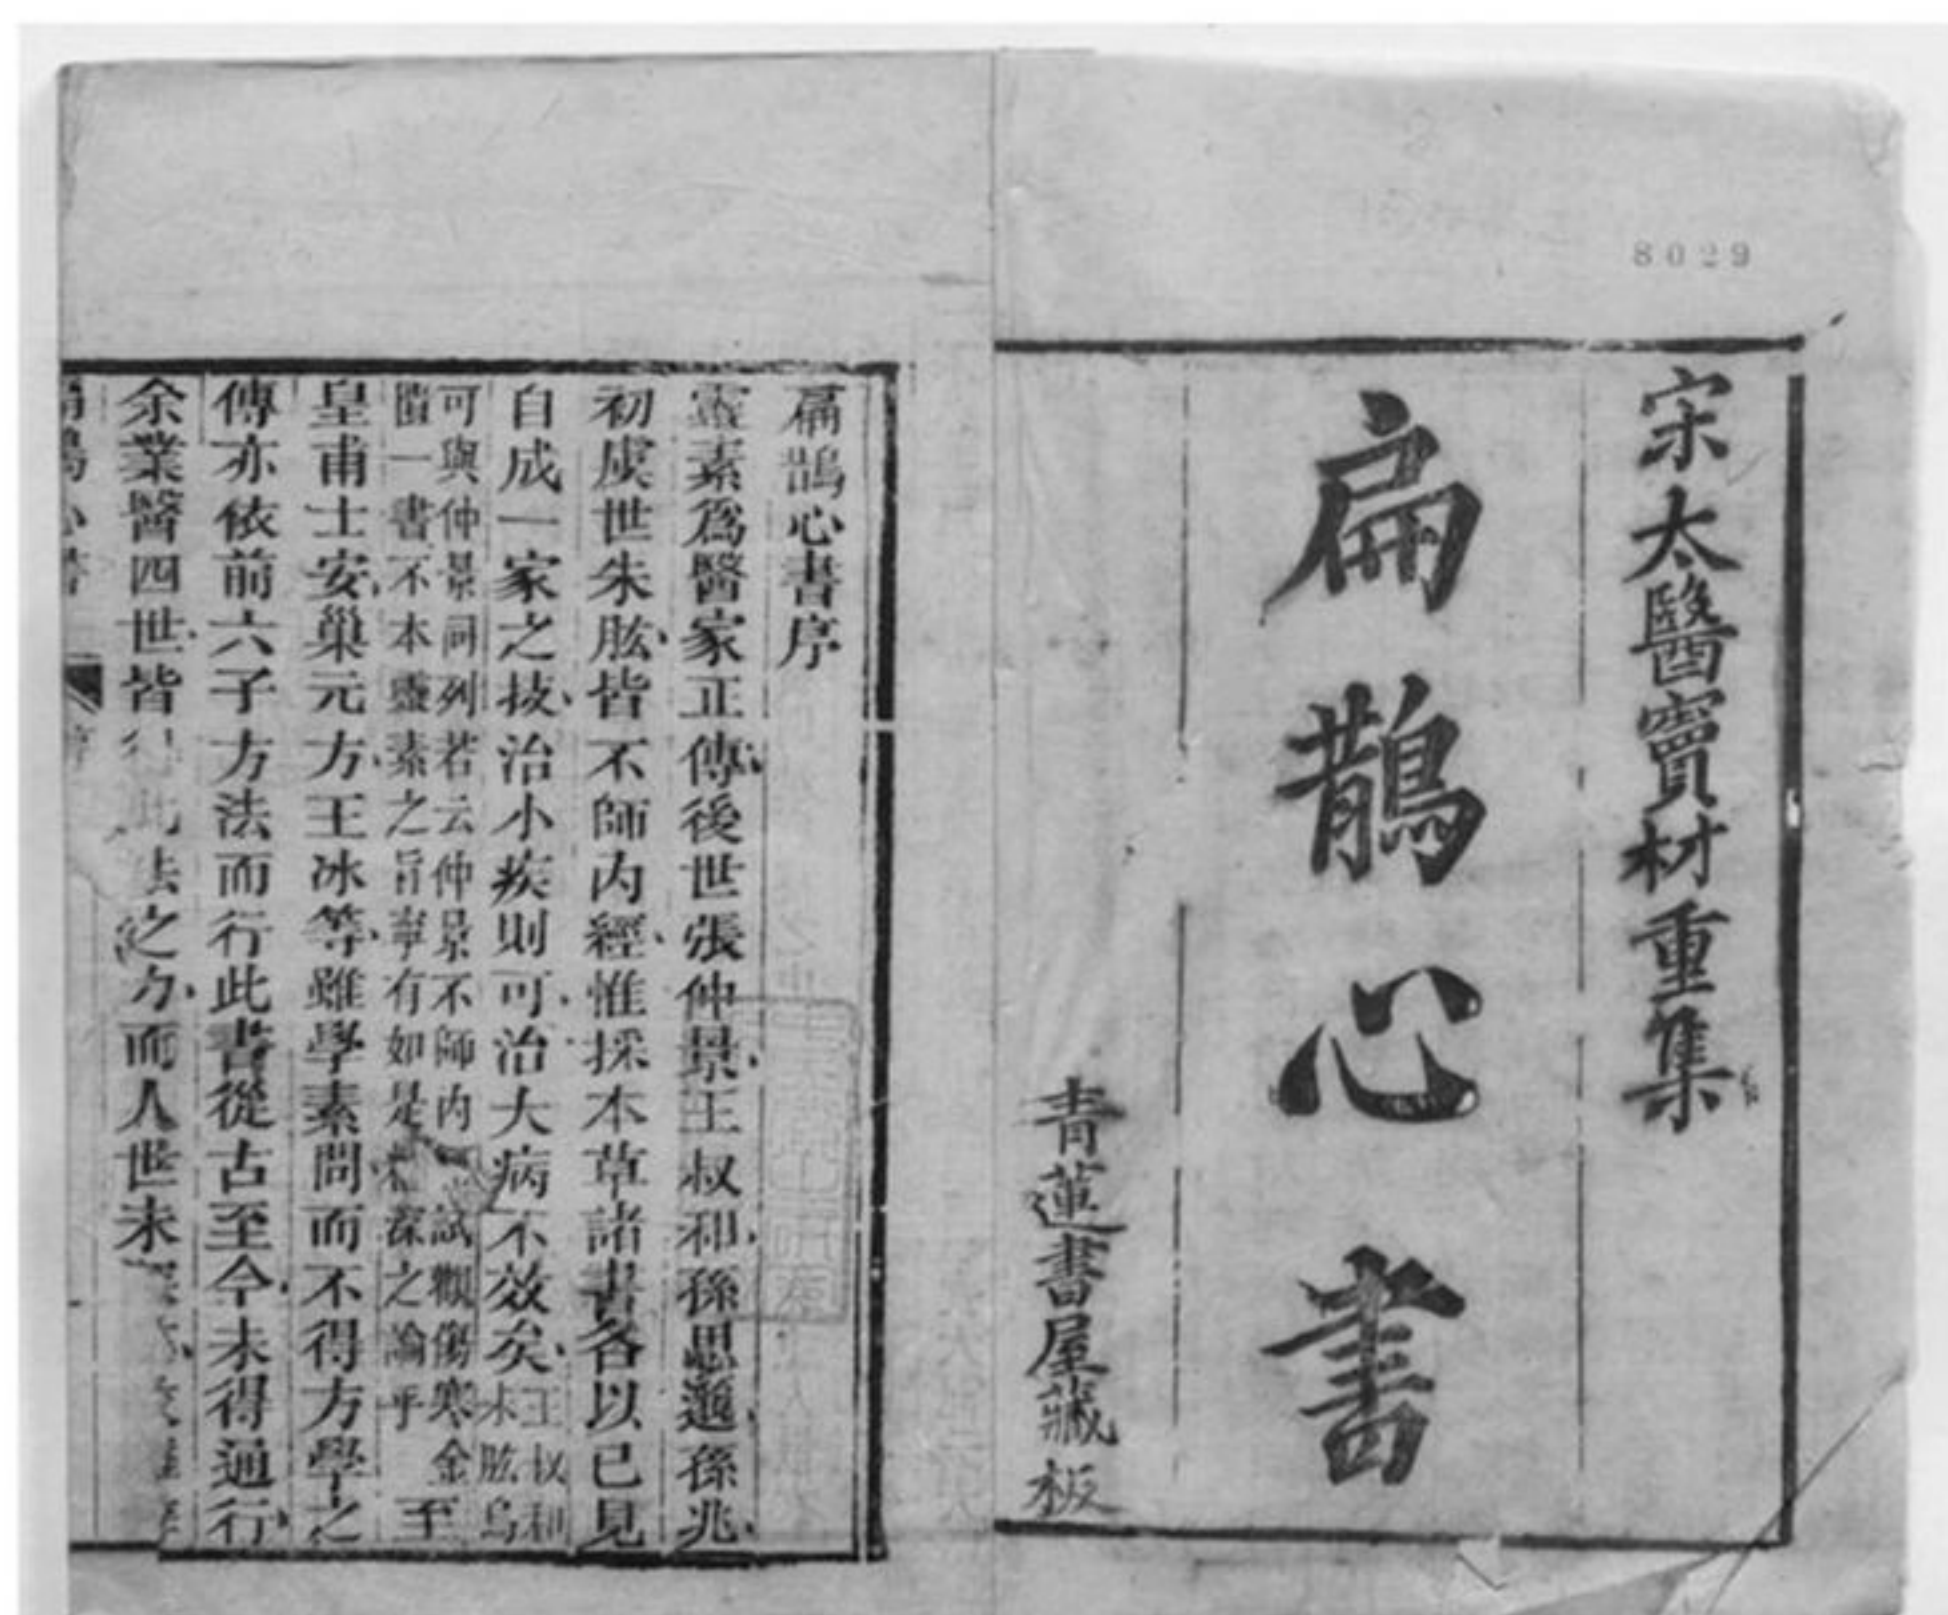 8029
宋太醫竇材重集
扁鵲心書
青蓮書屋藏板
扁鵲心書序
靈素爲醫家正傳後世張仲景王叔和孫思邈孫兆
初虞世朱肱皆不師內經惟採本草諸書各以已見
自成一家之技治小疾則可治大病不效矣王叔和
朱肱烏
可與仲景同列若云仲景不師內試觀傷寒金
匱一書不本靈素之旨寧有如是精深之論乎
至
皇甫士安巢元方王冰等雖學素問而不得方學之
傳亦依前六子方法而行此書從古至今未得通行
余業醫四世皆得此法之力而人世未
扁鵲心書